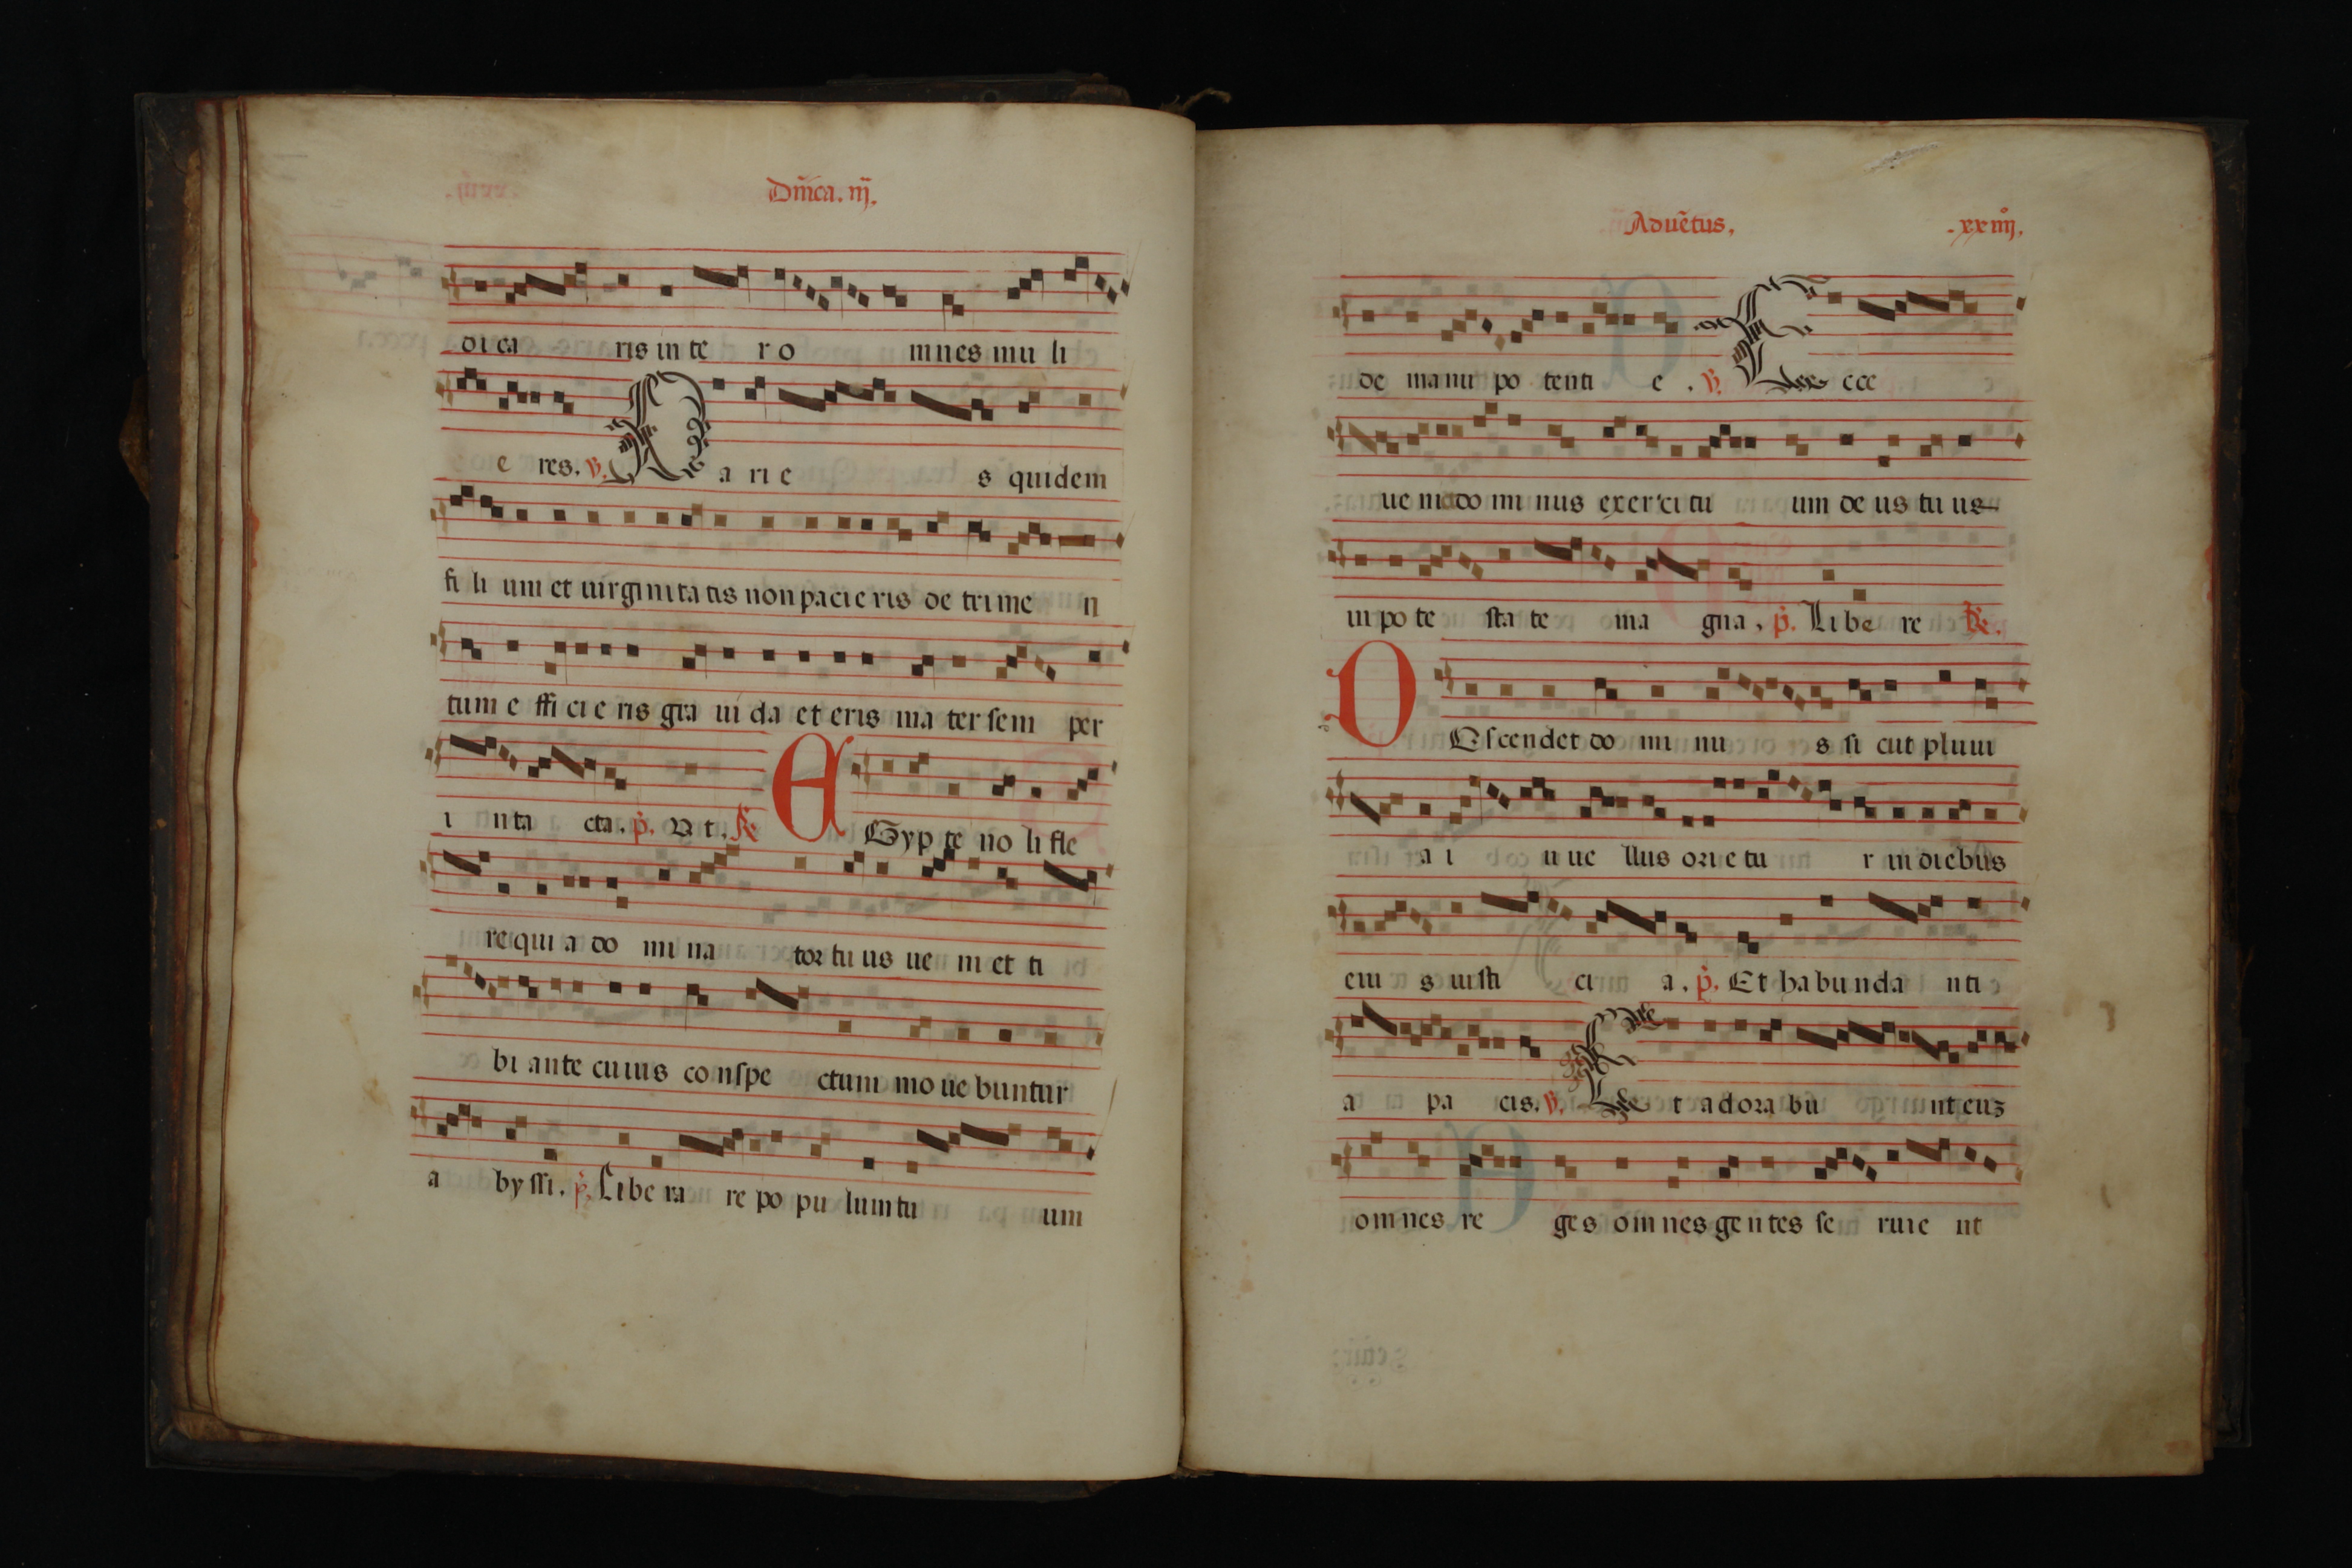 Dm̃ca. iij.
dica ris in te r o mnes mu li
e res. ℣. P a ri e s quidem
fi li um et uirginitatis non pacie ris de trime n
tum e ffi ci e ris gra ui da et eris ma ter sem per
i nta cta. p̃. V t. ℟
E Gyp te no li fle
re qui a do mi na tor tu us ue ni et ti
bi ante cuius conspe ctum mo ue buntur
a by ssi. p̃. Libe ra re po pu lum tu um
Aduẽtus. .xxiiij.
de manu po tenti e . ℣. E cce
ue ni do mi nus exercitu um de us tu us
in po te sta te ma gna. p̃. Libe re ℟.
D Escendet do mi nu s si cut pluui
a i n ue llus orie tu r in diebus
eiu s iusti ci a. p̃. Et habunda nti
a pa cis. ℣. E t adora bu nt euʒ
omnes re ges omnes gentes se ruie nt